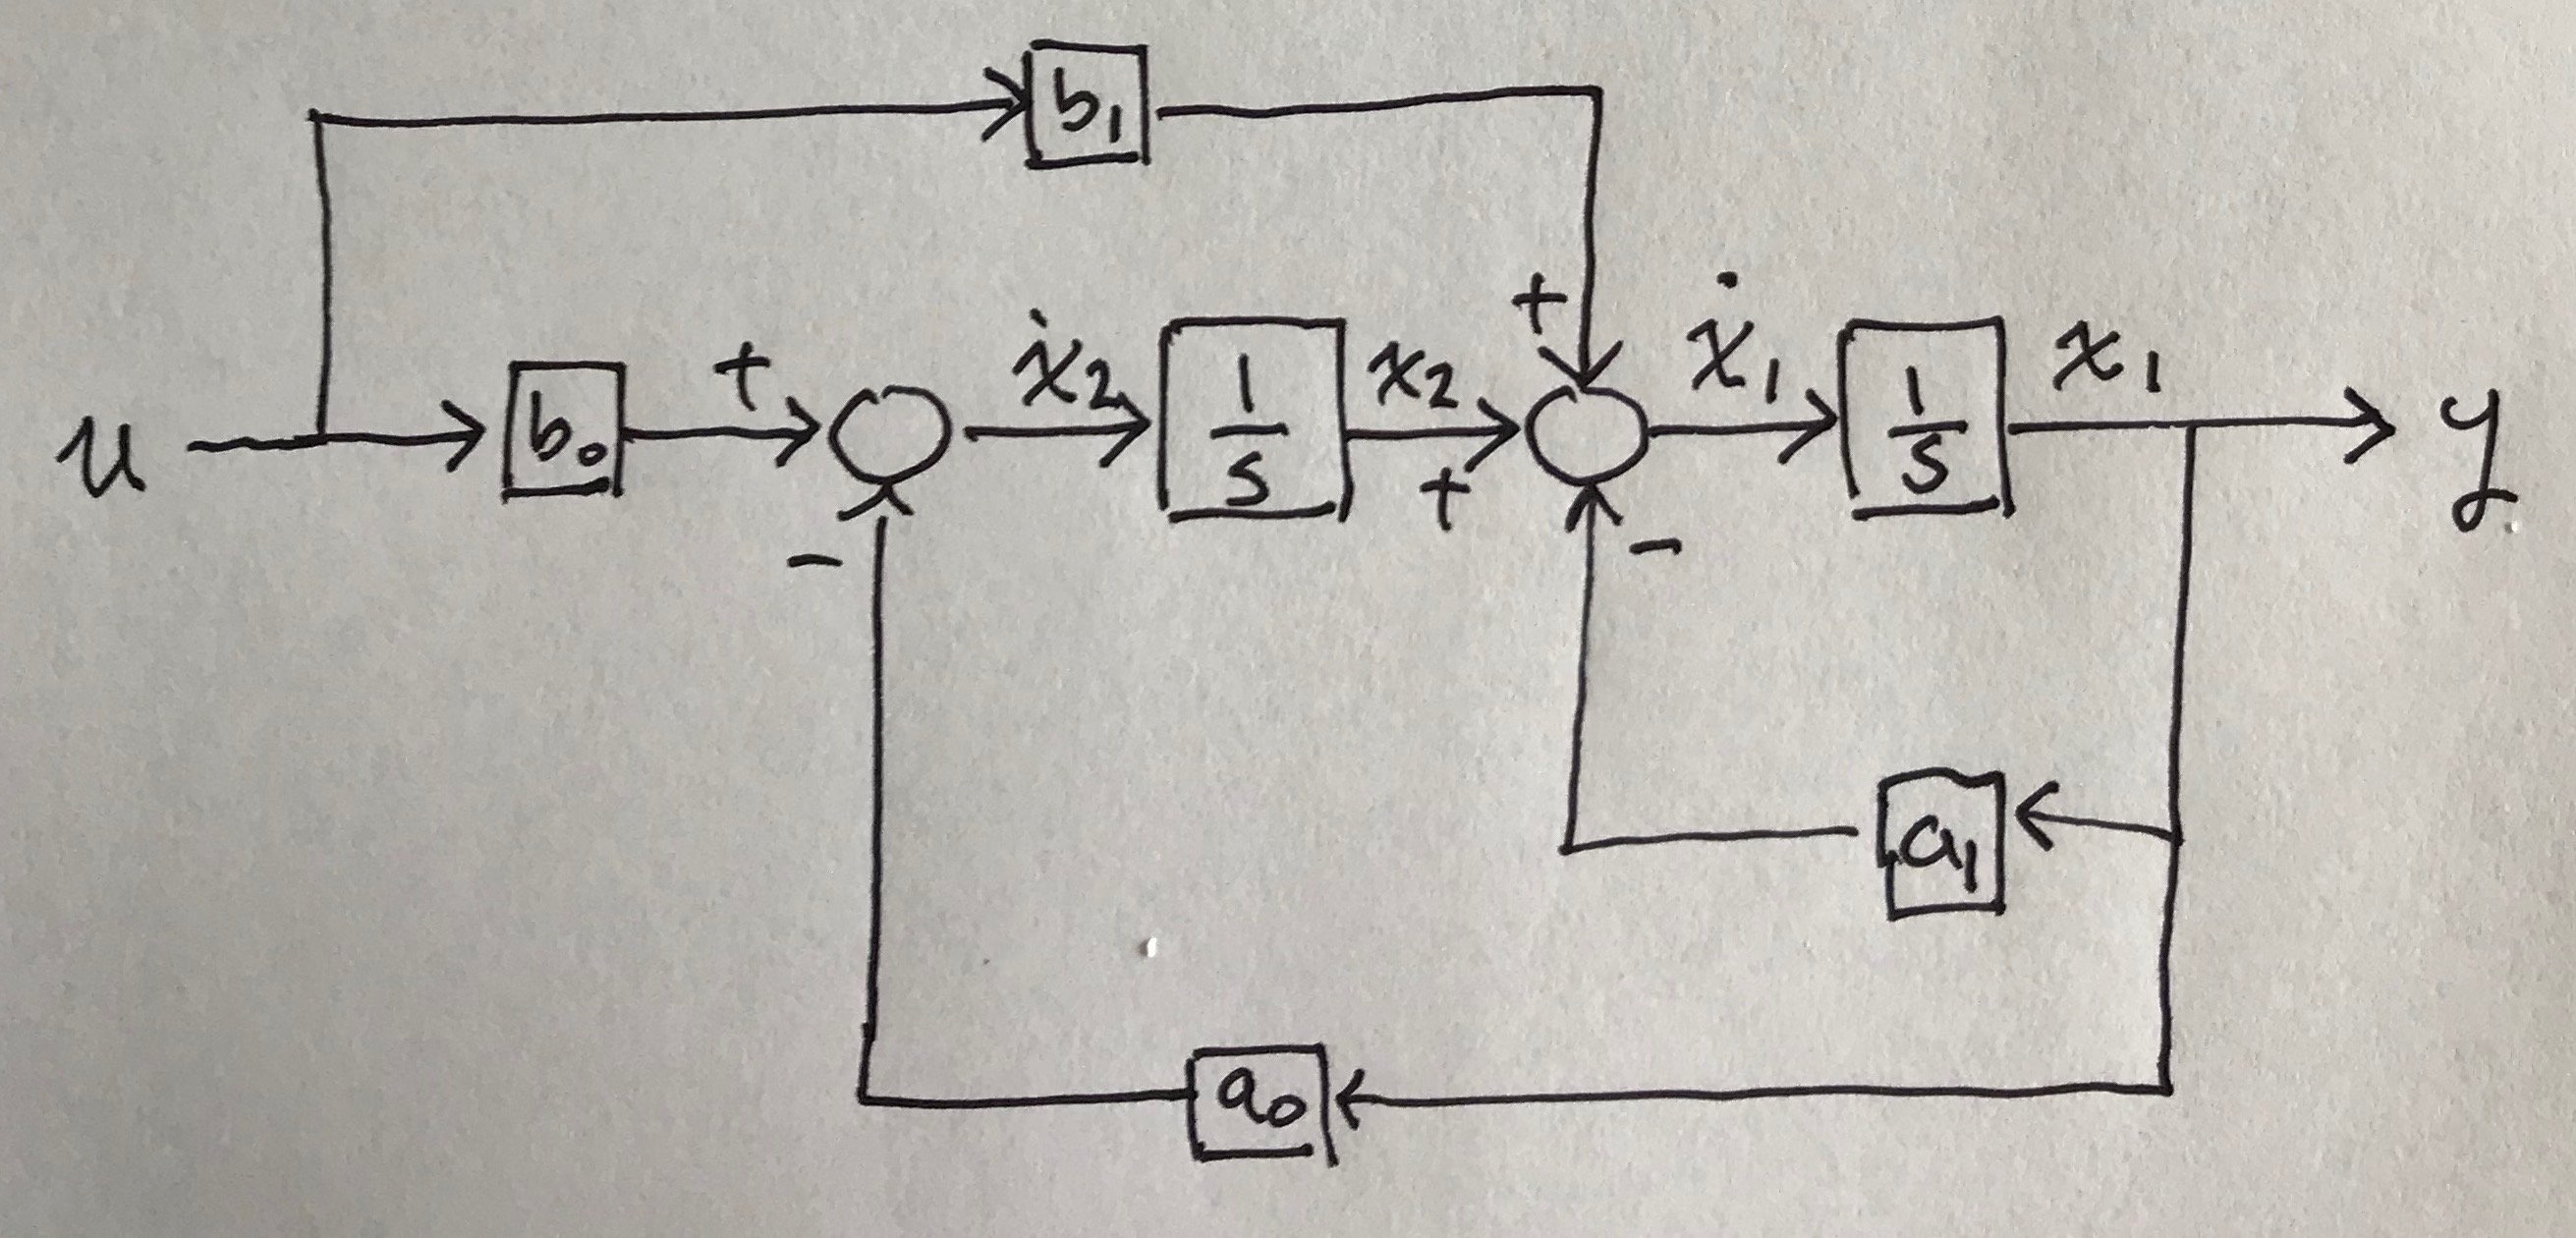 b₁
+
u
b₀
+
ẋ₂
1/s
x₂
+
ẋ₁
1/s
x₁
y
-
-
a₁
a₀